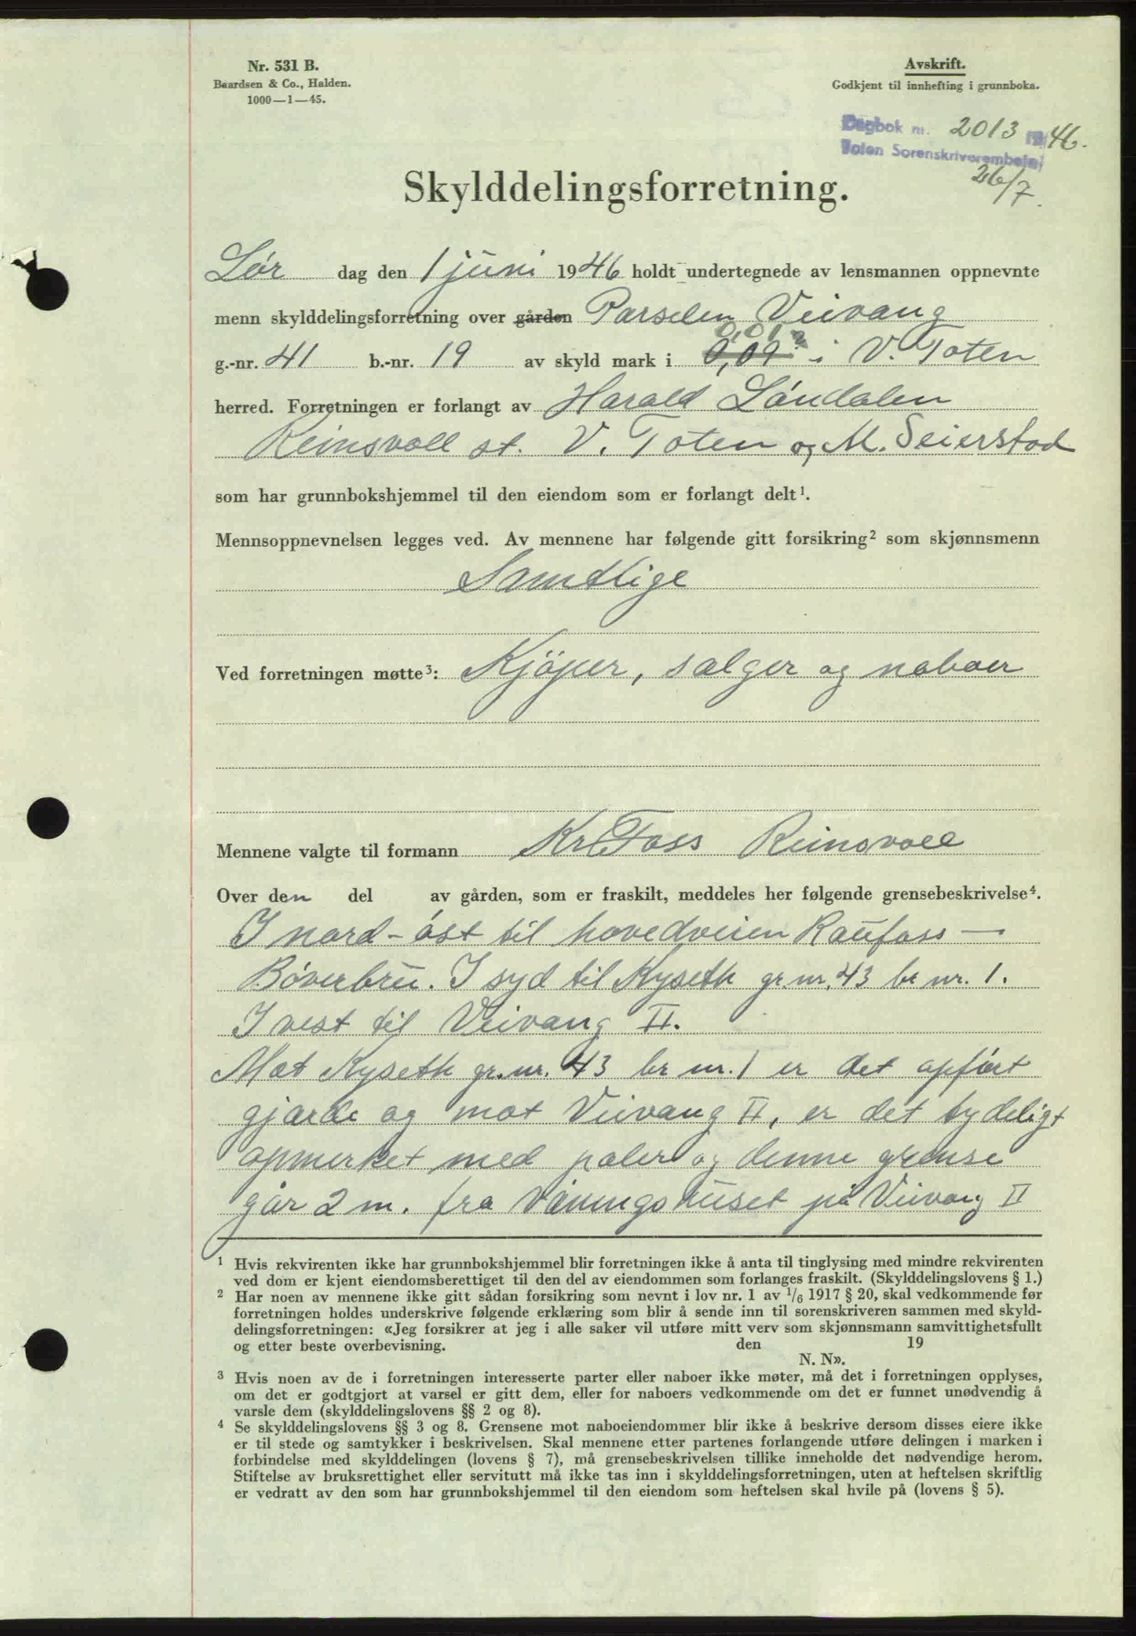 Nr. 531 B.
Baardsen & Co., Halden.
1000—1—45.
Avskrift.
Godkjent til innhefting i grunnboka.
Dagbok nr. 2013 1946.
Toten Sorenskriverembete
26/7.
Skylddelingsforretning.
Lør dag den 1 juni 1946 holdt undertegnede av lensmannen oppnevnte
menn skylddelingsforretning over gården Parselen Veivang
0,01
g.-nr. 41 b.-nr. 19 av skyld mark i 0,09 i V. Toten
herred. Forretningen er forlangt av Harald Løndalen
Reinsvoll st. V. Toten og M. Seierstad
som har grunnbokshjemmel til den eiendom som er forlangt delt¹.
Mennsoppnevnelsen legges ved. Av mennene har følgende gitt forsikring² som skjønnsmenn
Samtlige
Ved forretningen møtte³: Kjöper, sælger og naboer
Mennene valgte til formann Kr. Foss Reinsvoll
Over den del av gården, som er fraskilt, meddeles her følgende grensebeskrivelse⁴.
I nord-öst til hovedveien Raufoss —
Böverbru. I syd til Kyseth gr. nr. 43 br nr. 1.
I vest til Veivang II.
Mot Kyseth gr. nr. 43 br nr. 1 er det opført
gjærde og mot Veivang II, er det tydeligt
opmerket med pæler og denne grense
går 2 m. fra våningshuset på Veivang II
¹ Hvis rekvirenten ikke har grunnbokshjemmel blir forretningen ikke å anta til tinglysing med mindre rekvirenten
ved dom er kjent eiendomsberettiget til den del av eiendommen som forlanges fraskilt. (Skylddelingslovens § 1.)
² Har noen av mennene ikke gitt sådan forsikring som nevnt i lov nr. 1 av 1/6 1917 § 20, skal vedkommende før
forretningen holdes underskrive følgende erklæring som blir å sende inn til sorenskriveren sammen med skyld-
delingsforretningen: «Jeg forsikrer at jeg i alle saker vil utføre mitt verv som skjønnsmann samvittighetsfullt
og etter beste overbevisning. den 19
N. N».
³ Hvis noen av de i forretningen interesserte parter eller naboer ikke møter, må det i forretningen opplyses,
om det er godtgjort at varsel er gitt dem, eller for naboers vedkommende om det er funnet unødvendig å
varsle dem (skylddelingslovens §§ 2 og 8).
⁴ Se skylddelingslovens §§ 3 og 8. Grensene mot naboeiendommer blir ikke å beskrive dersom disses eiere ikke
er til stede og samtykker i beskrivelsen. Skal mennene etter partenes forlangende utføre delingen i marken i
forbindelse med skylddelingen (lovens § 7), må grensebeskrivelsen tillike inneholde det nødvendige herom.
Stiftelse av bruksrettighet eller servitutt må ikke tas inn i skylddelingsforretningen, uten at heftelsen skriftlig
er vedratt av den som har grunnbokshjemmel til den eiendom som heftelsen skal hvile på (lovens § 5).